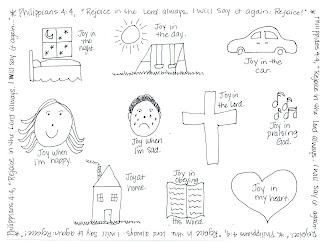 * Philippians 4:4, "Rejoice in the Lord always. I will say it again: Rejoice!" *
Philippians 4:4, "Rejoice in the Lord always. I will say it again:
Joy in
the
night.
Joy in
the day.
Joy in the
car.
Joy when
I'm happy.
Joy when
I'm Sad.
Joy in
the Lord.
Joy in
praising
God.
Joy at
home.
Joy in
obeying
the Word.
Joy in
my heart.
Philippians 4:4, "Rejoice in the Lord always. I will say it again:
Rejoice!" * Philippians 4:4, "Rejoice in the Lord always. I will say it again: Rejoice!"